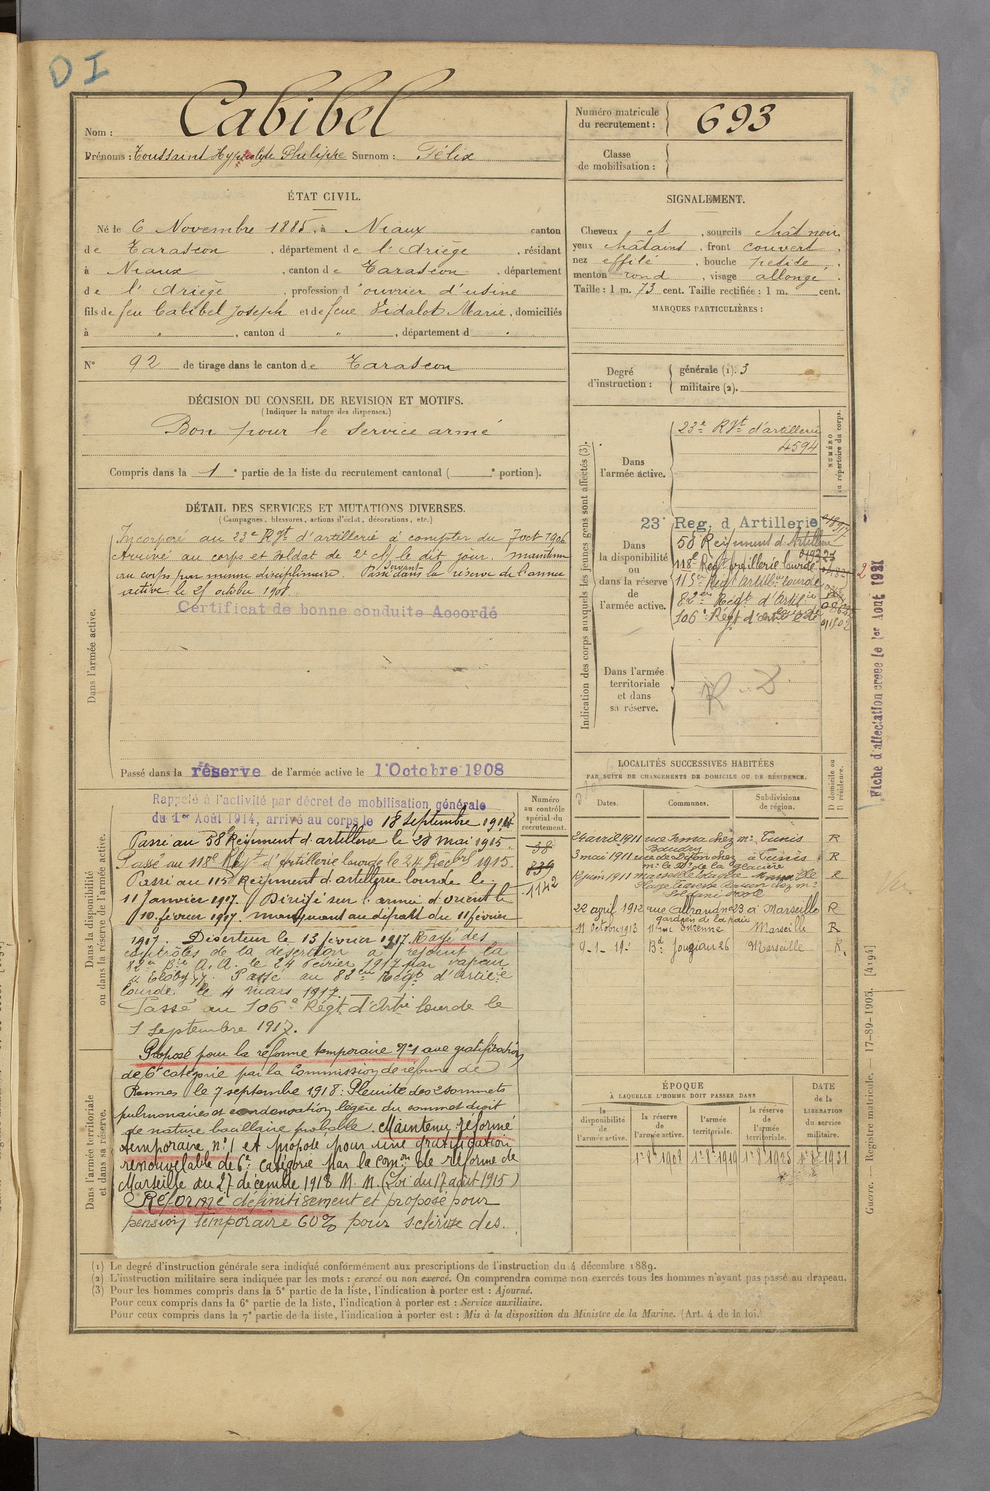 DI
Nom : Cabibel
Prénoms : Toussaint Hyppolyte Philippe Surnom : Félix
Numéro matricule du recrutement : 693
Classe de mobilisation :
ÉTAT CIVIL.
Né le 6 Novembre 1885, à Niaux canton
de Tarascon, département de l'Ariège, résidant
à Niaux, canton de Tarascon, département
de l'Ariège, profession d'ouvrier d'usine
fils de feu Cabibel Joseph et de feue Vidalot Marie, domiciliés
à " , canton d " , département d "
N° 92 de tirage dans le canton de Tarascon
DÉCISION DU CONSEIL DE REVISION ET MOTIFS.
(Indiquer la nature des dispenses.)
Bon pour le service armé
Compris dans la 1e partie de la liste du recrutement cantonal ( e portion).
SIGNALEMENT.
Cheveux et , sourcils chât noir,
yeux châtains , front couvert ,
nez effilé , bouche petite ,
menton rond , visage allongé
Taille : 1 m. 73 cent. Taille rectifiée : 1 m. cent.
MARQUES PARTICULIÈRES :
Degré d'instruction : générale (1). 3
militaire (2).
DÉTAIL DES SERVICES ET MUTATIONS DIVERSES.
(Campagnes, blessures, actions d'éclat, décorations, etc.)
Dans l'armée active.
Incorporé au 23e Rgt d'artillerie à compter du 7 oct 1906
Arrivé au corps et soldat de 2e cl. le dit jour. maintenu
au corps par mesure disciplinaire. Passé dans la réserve de l'armée
active le 25 octobre 1908.
Certificat de bonne conduite Accordé
Passé dans la réserve de l'armée active le 1 Octobre 1908
Indication des corps auxquels les jeunes gens sont affectés (3).
NUMÉRO au répertoire du corps.
Dans l'armée active.
23e Rgt d'artillerie
4594
Dans la disponibilité ou dans la réserve de l'armée active.
23e Reg. d Artillerie
58 Régiment d'Artillerie
118e Regt artillerie lourde
115e Regt Artillie lourde
82eme Régt d'Artil
106e Régt d'artie lourde
Dans l'armée territoriale et dans sa réserve.
R - D
Fiche d'affectation créée le 1er Aout 1921
2
Dans la disponibilité ou dans la réserve de l'armée active.
Rappelé à l'activité par décret de mobilisation générale
du 1er Août 1914, arrivé au corps le 18 septembre 1914
Passé au 58e Régiment d'artillerie le 28 mai 1915.
Passé au 118e Régt d'Artillerie lourde le 24 Decbre 1915.
Passé au 115e Régiment d'artillerie lourde le
11 Janvier 1917. Dirigé sur l'armée d'orient le
10 février 1917. manquant au départ du 11 février
1917. Déserteur le 13 février 1917. Rayé des
contrôles de la désertion a rejoint la
82e Bie A. A. le 24 Février 1917 par vapeur
Passé au 82eme Régt d'Artillie
lourde le 4 mars 1917
Passé au 106e Régt d'Artie lourde le
1 septembre 1917.
Numéro au contrôle spécial du recrutement.
38
839
1142
Dans l'armée territoriale et dans sa réserve.
Proposé pour la réforme temporaire N°1 avec gratification
de 6e catégorie par la Commission de réforme de
Rennes le 7 septembre 1918 : Pleurite des 2 sommets
pulmonaires et condensation légère du sommet droit
de nature bacillaire probable. Maintenu réformé
temporaire n° 1 et proposé pour une gratification
renouvelable de 6e catégorie par la comon de réforme de
Marseille du 27 décembre 1918 M. M. (Loi du 17 aout 1915)
Réformé définitivement et proposé pour
pension temporaire 60% pour sclérose des
LOCALITÉS SUCCESSIVES HABITÉES
PAR SUITE DE CHANGEMENTS DE DOMICILE OU DE RÉSIDENCE.
Dates. Communes. Subdivisions de région. D domicile ou R résidence.
24 avril 1911 Tunis R
3 mai 1911 rue de Dijon chez à Tunis R
12 juin 1911 Marseille R
22 avril 1912 23 à Marseille R
11 octobre 1913 Marseille R
9-1-19 Bd Jougian 26 Marseille R.
ÉPOQUE
À LAQUELLE L'HOMME DOIT PASSER DANS
la disponibilité de l'armée active.
la réserve de l'armée active.
l'armée territoriale.
la réserve de l'armée territoriale.
DATE de la LIBÉRATION du service militaire.
1er 8bre 1908 1er 8bre 1919 1er 8bre 1925 1er 8bre 1931
Guerre. — Registre matricule. — 17-89-1905. [4195]
(1) Le degré d'instruction générale sera indiqué conformément aux prescriptions de l'instruction du 4 décembre 1889.
(2) L'instruction militaire sera indiquée par les mots : exercé ou non exercé. On comprendra comme non exercés tous les hommes n'ayant pas passé au drapeau.
(3) Pour les hommes compris dans la 5e partie de la liste, l'indication à porter est : Ajourné.
Pour ceux compris dans la 6e partie de la liste, l'indication à porter est : Service auxiliaire.
Pour ceux compris dans la 7e partie de la liste, l'indication à porter est : Mis à la disposition du Ministre de la Marine. (Art. 4 de la loi.)